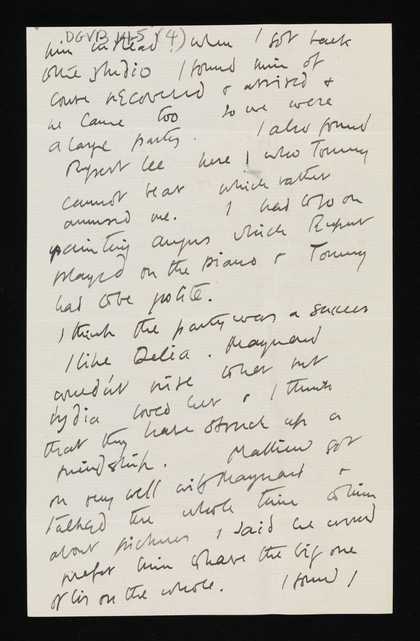 DGVB 145 (4)
him instead!) when I got back
to the studio I found him of
course recovered & arrived &
he came too so we were
a large party. I also found
Rupert Lee here! who Tommy
cannot bear which rather
amused me. I had to go on
painting Angus which Rupert
played on the piano & Tommy
had to be polite.
I think the party was a success
I like Delia. Maynard
wouldn't rise but
Lydia loved her & I think
that they have struck up a
friendship. Matthew got
on very well with Maynard &
talked the whole time to him
about pictures, I said we would
prefer him to have the big one
of us on the whole. I found I